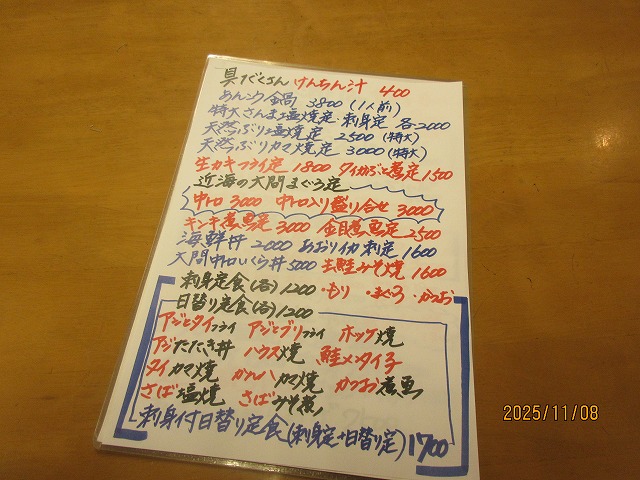 具だくさん けんちん汁 400
あんこう鍋 3800 (1人前)
特大さんま塩焼定・刺身定 各2000
天然ぶり塩焼定 2500 (特大)
天然ぶりカマ焼定 3000 (特大)
生カキフライ定 1800 タイかぶと煮定 1500
近海の大間まぐろ定
中トロ 3000 中トロ入り盛り合せ 3000
キンキ煮魚定 3000 金目煮魚定 2500
海鮮丼 2000 あおりイカ刺定 1600
大間中トロいくら丼 5000 生鮭みそ焼 1600
刺身定食(各) 1200 ・もり ・まぐろ ・かつお
日替り定食(各) 1200
アジとタイフライ アジとブリフライ ホッケ焼
アジたたき丼 ハラス焼 鮭メンタイ子
タイカマ焼 カンパチカマ焼 かつお煮魚
さば塩焼 さばみそ煮
刺身付日替り定食(刺身定+日替り定) 1700
2025/11/08